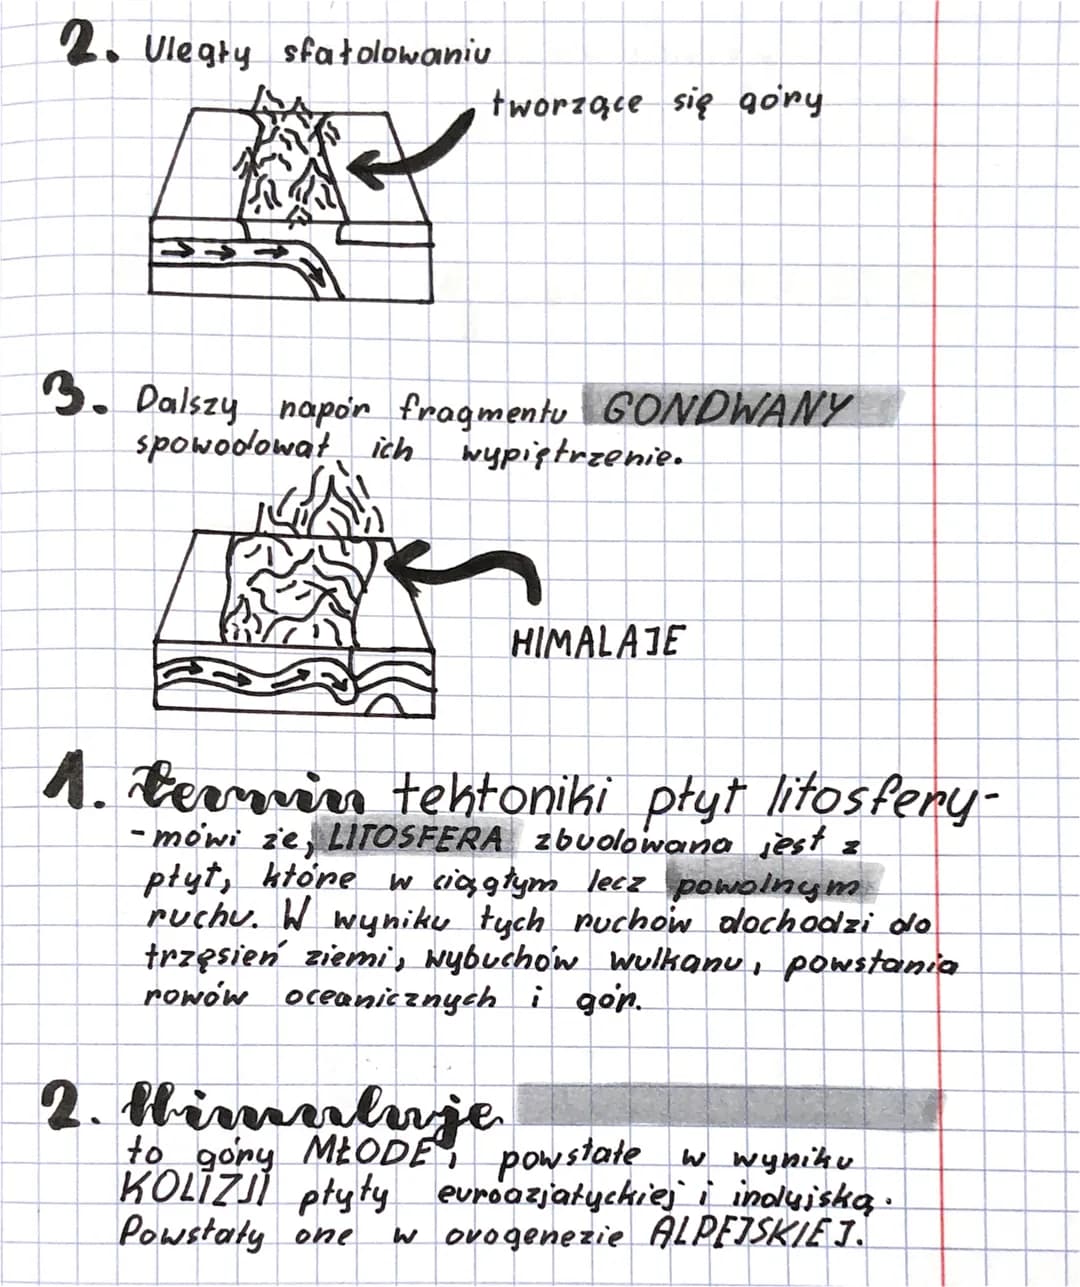 2. Uległy sfałdowaniu
tworzące się góry
3. Dalszy napór fragmentu GONDWANY
spowodował ich wypiętrzenie.
HIMALAJE
1. termin tektoniki płyt litosfery-
- mówi że, LITOSFERA zbudowana jest z
płyt, które w ciągłym lecz powolnym
ruchu. W wyniku tych ruchów dochodzi do
trzęsień ziemi, wybuchów wulkanu, powstania
rowów oceanicznych i gór.
2. Himalaje
to góry MŁODE, powstałe w wyniku
KOLIZJI płyty euroazjatyckiej i indyjską.
Powstały one w orogenezie ALPEJSKIEJ.